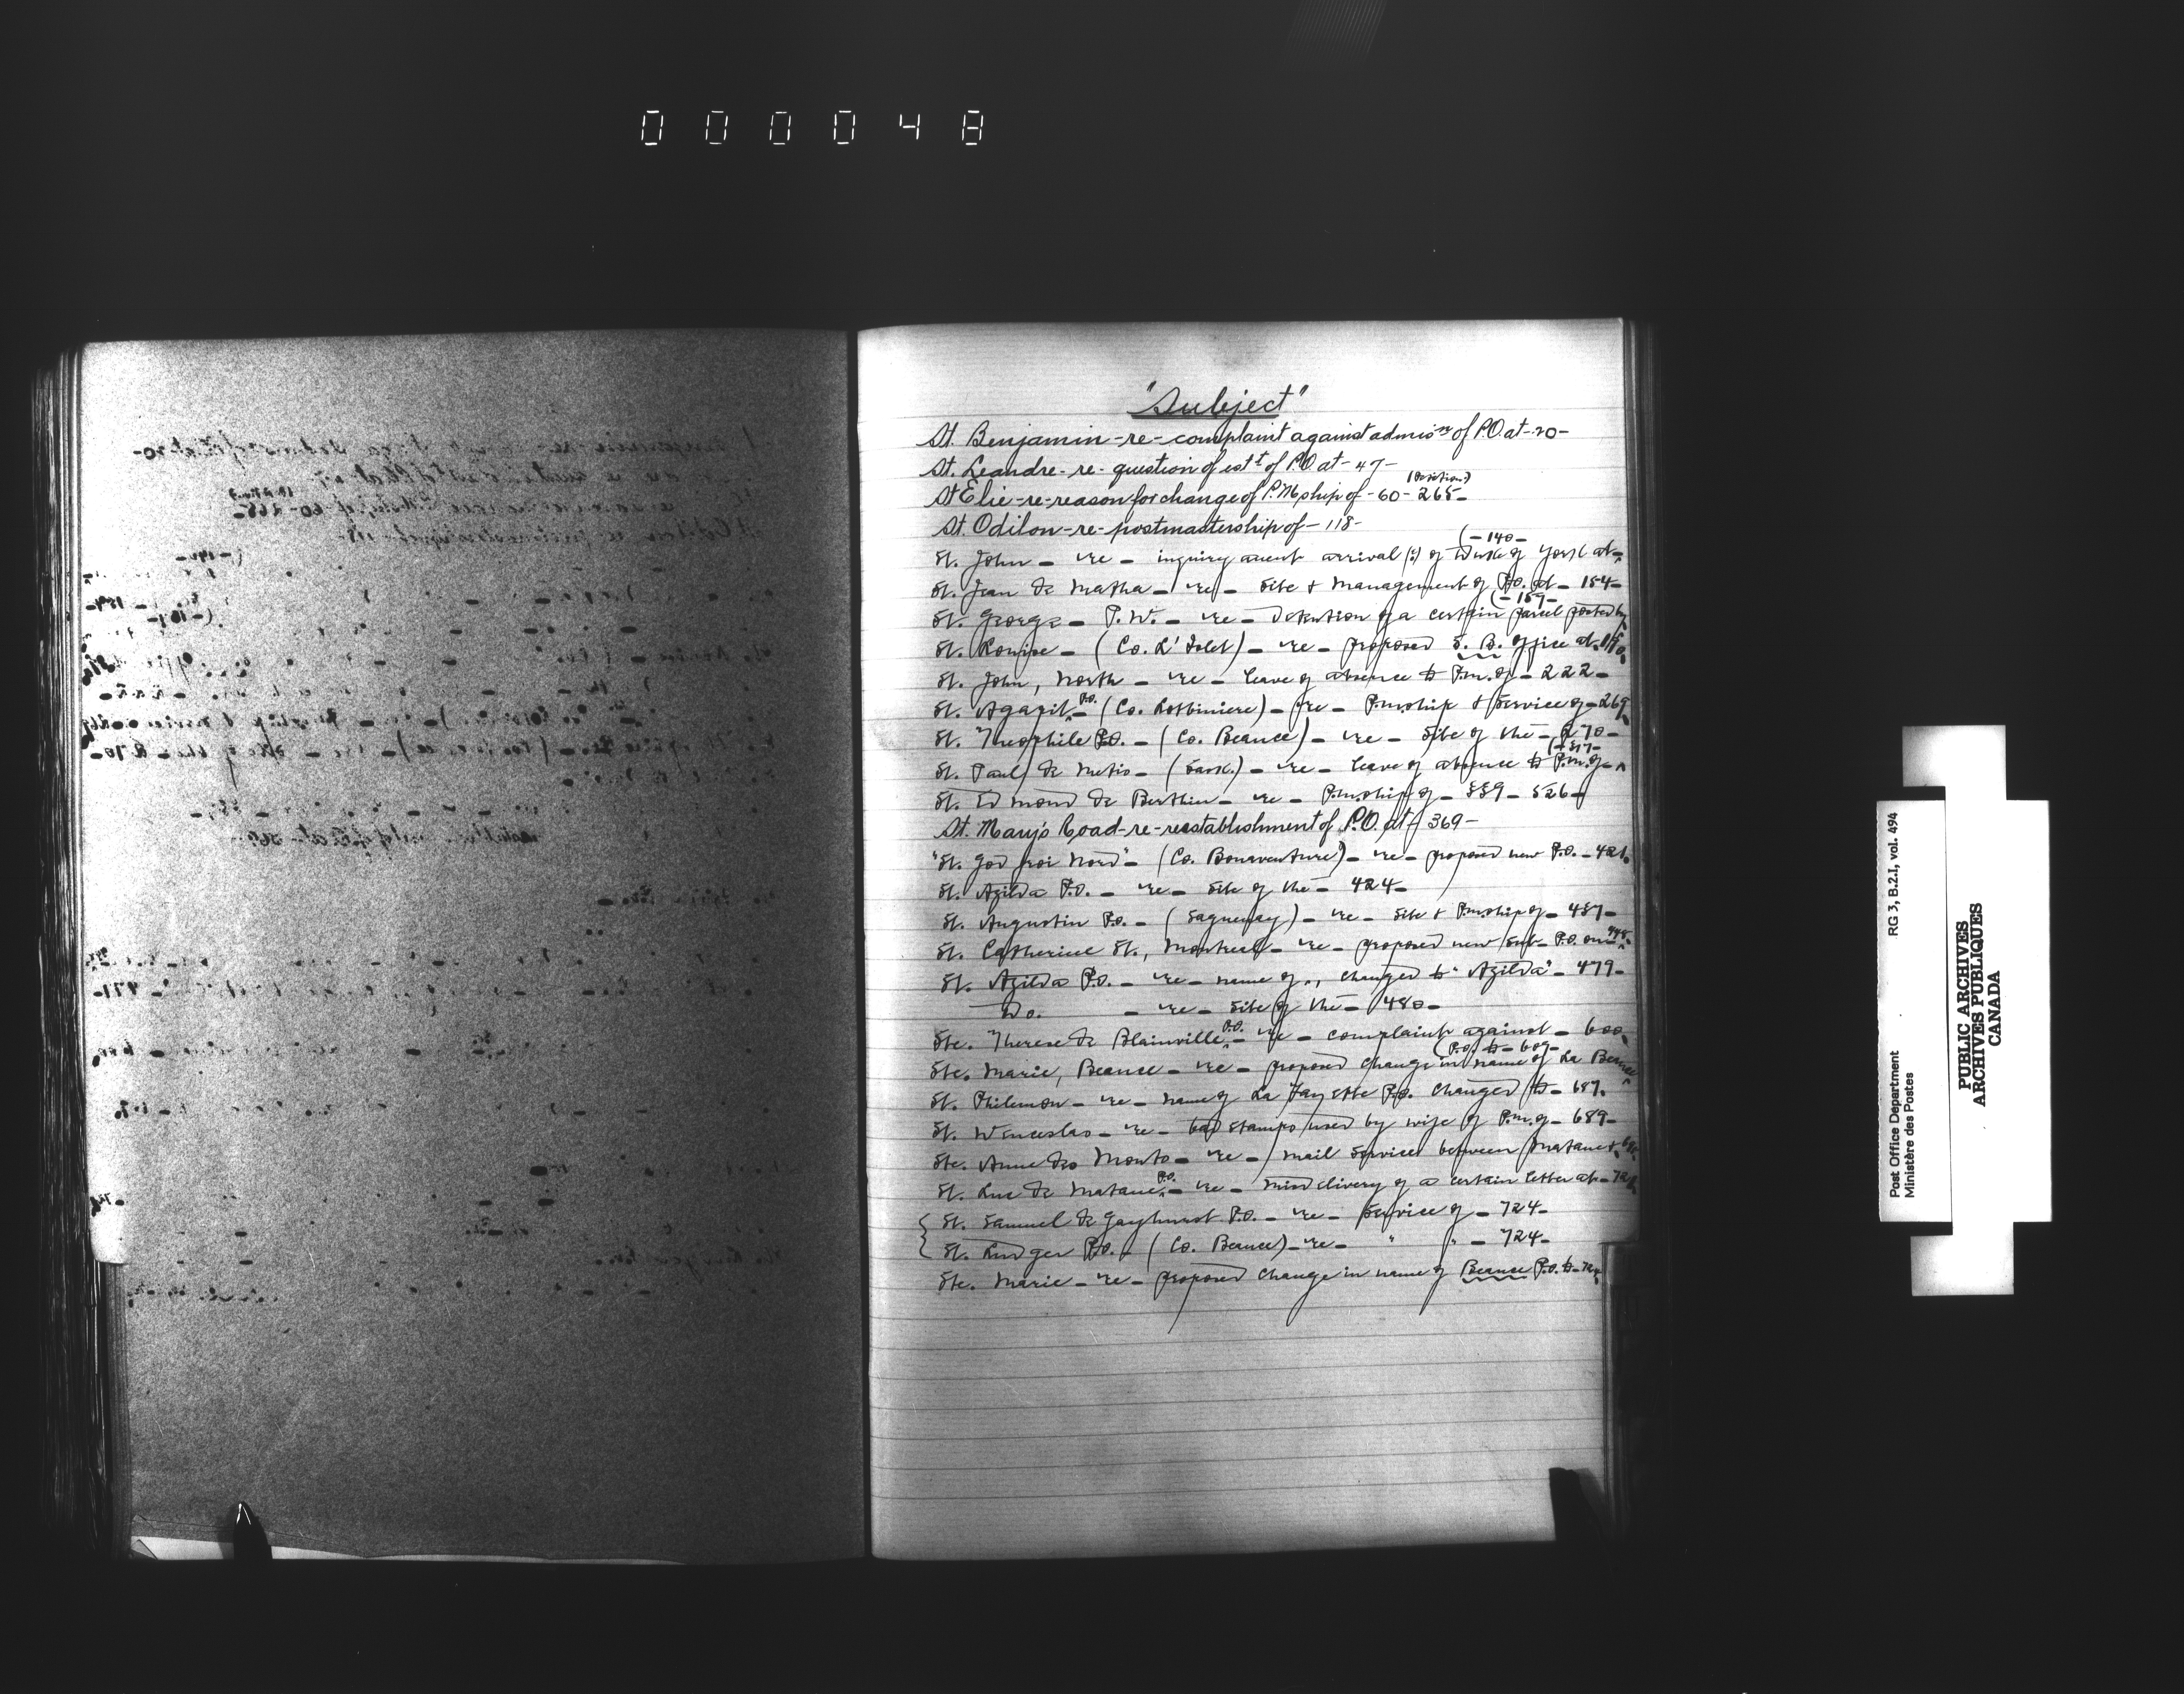 000048
"Subject"
St. Benjamin-re-complaint against admisn of P.O. at-20-
St. Leandre-re-question of estt of P.O. at-47-
(Position)
St Elie-re-reason for change of P.Mship of-60-265-
St. Odilon-re-postmastership of-118-
(-140-
St. John - re - inquiry anent arrival (?) of Duke of York at-^
St. Jean de Matha - re - site & management of P.O. at - 154-
(-159-
St. George - P.W. - re - detention of a certain parcel posted by^
St. Louise - (Co. L'Islet) - re - proposed S.B. office at-
St. John, North - re - leave of absence to P.m. of - 222-
St. Agapit P.O. - (Co. Lotbiniere) - re - P.m.ship & service of - 269
St. Theophile P.O. - (Co. Beauce) - re - site of the - 270-
(-317-
St. Paul de Metis - (Sask.) - re - leave of absence to P.m. of - ^
St. Edmond de Berthier - re - P.m.ship of - 339 - 526-
St. Mary's Road-re-reestablishment of P.O. at-369-
"St. God froi Nord" - (Co. Bonaventure) - re - proposed new P.O. - 421.
St. Azilda P.O. - re - site of the - 424-
St. Augustin P.O. - (Saguenay) - re - site & P.m.ship of - 437-
St. Catherine St., Montreal - re - proposed new sub-P.O. on -
St. Azilda P.O. - re - name of, changed to "Azilda" - 479-
Do. - re - site of the - 480-
Ste. Therese de Blainville P.O. - re - complaint against - 600
(P.O. to - 609-
Ste. Marie, Beauce - re - proposed change in name of La Beauce
St. Philemon - re - name of La Fayette P.O. changed to - 687.
St. Wenceslas - re - bad stamps used by wife of P.m. of - 689-
Ste. Anne des Monts - re - mail service between Matane &
St. Luc de Matane P.O. - re - misdelivery of a certain letter at -
St. Samuel de Gayhurst P.O. - re - service of - 724-
St. Ludger P.O. - (Co. Beauce) - re - " " - 724-
Ste. Marie - re - proposed change in name of Beauce P.O. to -
RG 3, B.2.I, vol. 494
Post Office Department
Ministère des Postes
PUBLIC ARCHIVES
ARCHIVES PUBLIQUES
CANADA